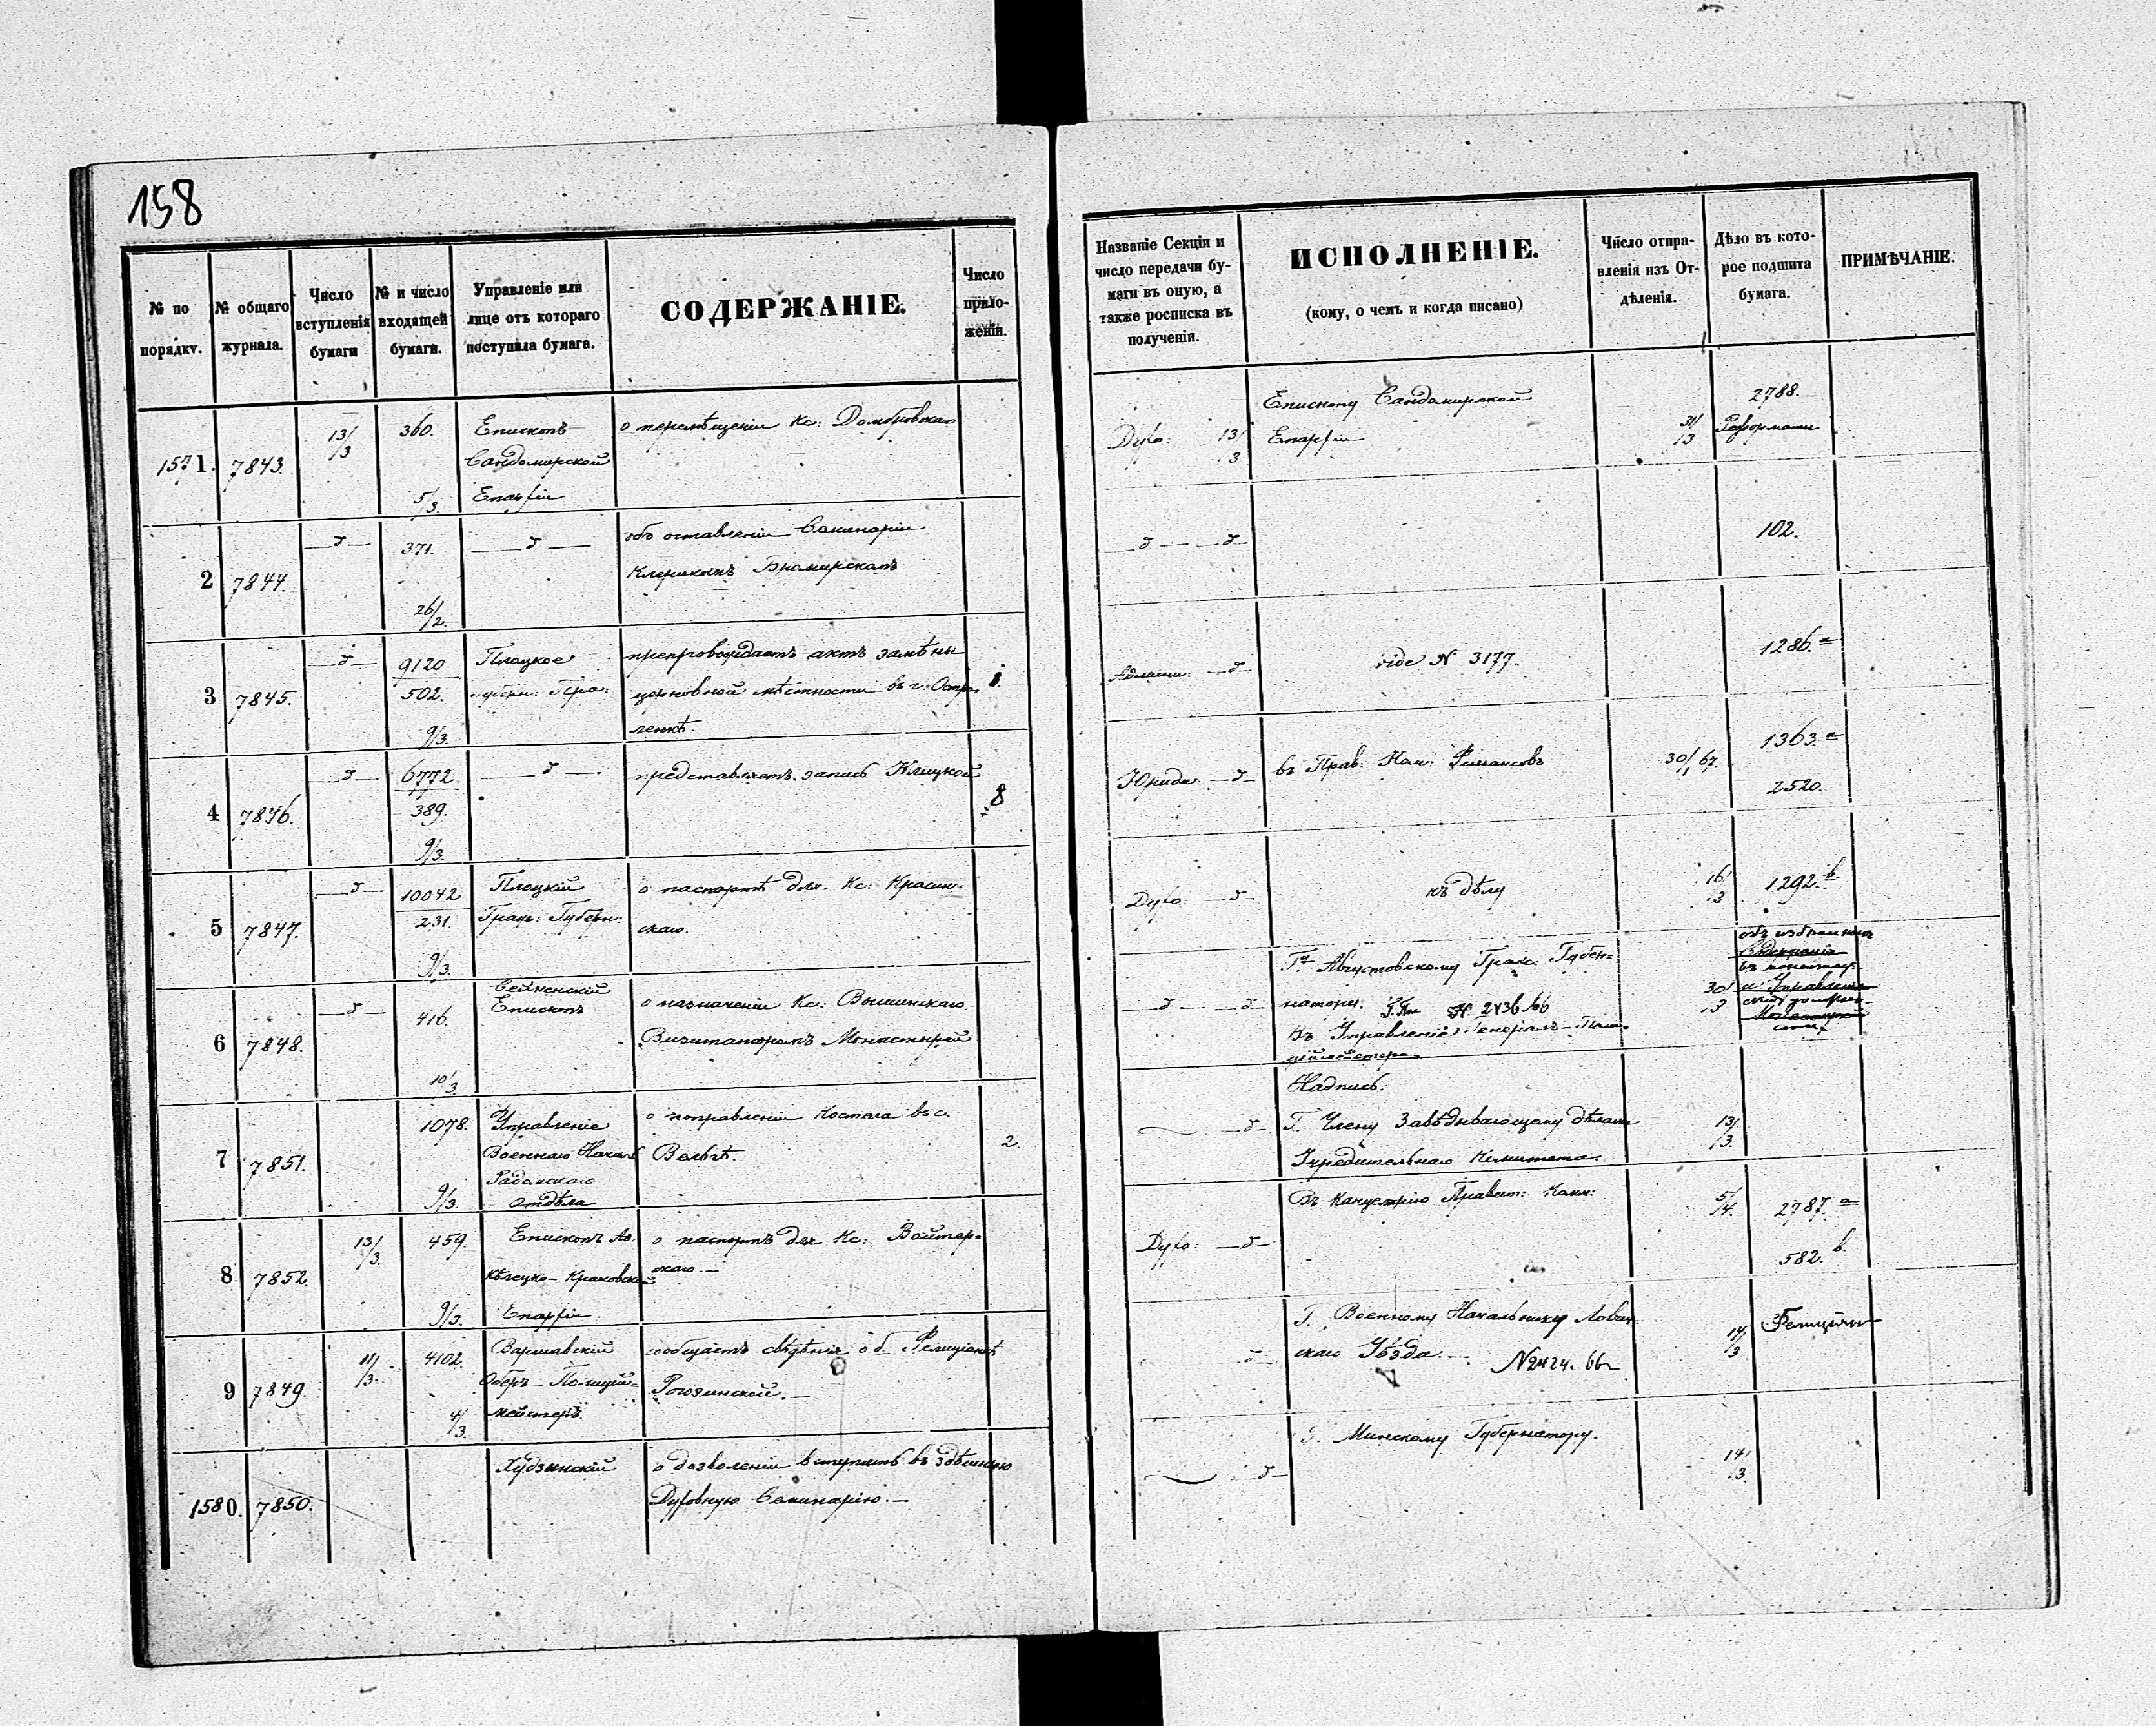 158
№ по порядку.
№ общаго журнала.
Число вступленія бумаги
№ и число входящей бумаги.
Управленіе или лице отъ котораго поступила бумага.
СОДЕРЖАНІЕ.
Число приложеній.
Названіе Секціи и число передачи бумаги въ оную, а также росписка въ полученіи.
ИСПОЛНЕНІЕ.
(кому, о чемъ и когда писано)
Число отправленія изъ Отдѣленія.
Дѣло въ которое подшита бумага.
ПРИМѢЧАНІЕ.
1571. 7843. 13/3 360. Епископъ о перемѣщеніи Кс: Домбровскаго
Сандомирской
5/3. Епархіи
Духо: 13/3 Епископу Сандомирской 31/3 2788.
Епархіи Реформаты
2 7844. д 371. д объ оставленіи Семинаріи
Клерикомъ
26/2.
д д 102.
3 7845. д 9120 Плоцкое препровождаетъ актъ замѣны
502. Губерн: Пра: церковной мѣстности въ г: Остро- 1.
9/3. ленкѣ.
д vide N 3177. 1286. а
4 7846. д 6772 д представляетъ запись Клицкой
389. 8
9/3.
Юриди: д въ Прав: Ком: Финансовъ 30/1 67. 1363. а
2520.
5 7847. д 10042 Плоцкій о паспортѣ для Кс: Красин-
231. Граж: Губерн: скаго.
9/3.
Духо: д къ дѣлу 16/3 1292. в.
6 7848. д 416. Сейненскій
Епископъ о назначеніи Кс: Вышинскаго
Визитаторомъ Монастырей
10/3
д д Гну Августовскому Граж: Губер-
натору. N. 2436/66 30/3
Въ Управленіе Генералъ-Поли-
ціймейстера.
7 7851. 1078. Управленіе о поправленіи костела въ с.
Военнаго Начал. 2.
Радомскаго
9/3. Отдѣла
Надпись.
д Г. Члену Завѣдывающему дѣлами 13/3.
Учредительнаго Комитета.
8 7852. 13/3. 459. Епископъ о паспортѣ для Кс: Войтер-
Кѣлецко-Краковской скаго.—
9/3. Епархіи.
Духо: д Въ Канцелярію Правит: Комм: 5/4. 2787. а
582. в.
9 7849. 11/3. 4102. Варшавскій сообщаетъ свѣдѣнія об Фелиціанкѣ
Оберъ-Полицій- Рогозинской.—
4/3. мейстеръ
д Г. Военному Начальнику Лович-
скаго Уѣзда.— N 2424. 66 14/3
1580. 7850. Худзинскій о дозволеніи вступить въ здѣшнюю
Духовную Семинарію.—
д Г. Минскому Губернатору. 14/3.